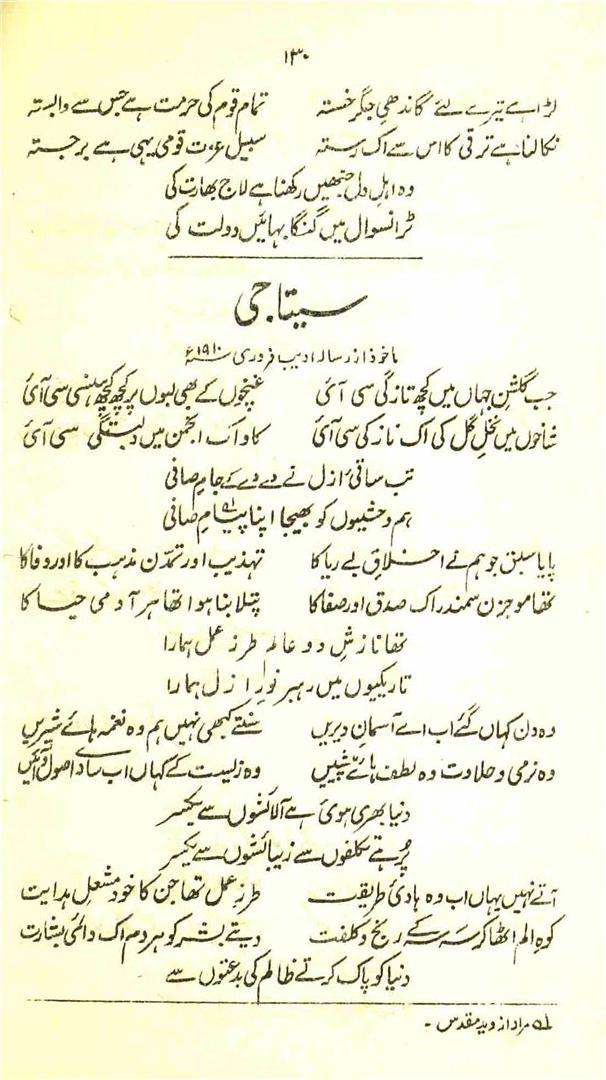 ۱۳۰
لڑا ہے تیرے لئے گاندھیِ جگر خستہ تمام قوم کی حرمت ہے جس سے وابستہ
نکالنا ہے ترقی کا اس سے اک رستہ سبیلِ عزت قومی یہی ہے برجستہ
وہ اہلِ دل جنھیں رکھنا ہے لاج بھارت کی
ٹرانسوال میں گنگا بہائیں دولت کی
سیتا جی
ماخوذ از رسالہ ادیب فروری سنہ ۱۹۱۰ء
جب گلشنِ جہاں میں کچھ تازگی سی آئی غنچوں کے بھی لبوں پر کچھ کچھ ہنسی سی آئی
شاخوں میں نخلِ گل کی اک نازکی سی آئی کاواک انجمن میں دلبستگی سی آئی
تب ساقیٔ ازل نے دے دے کے جامِ صافی
ہم وحشیوں کو بھیجا اپنا پیامِ۱ صافی
پایا سبق جو ہم نے اخلاقِ بے ریا کا تہذیب اور تمدن مذہب کا اور وفا کا
تھا موجزن سمندر اک صدق اور صفا کا پتلا بنا ہوا تھا ہر آدمی حیا کا
تھا نازشِ دو عالم طرزِ عمل ہمارا
تاریکیوں میں رہبر نورِ ازل ہمارا
وہ دن کہاں گئے اب اے آسمانِ دیریں سنتے کبھی نہیں ہم وہ نغمہ ہائے شیریں
وہ نرمی و حلاوت وہ لطف ہائے پیشیں وہ زیست کے کہاں اب سادے اصول و آئیں
دنیا بھری ہوئی ہے آلائشوں سے یکسر
پُر ہے تکلفوں سے زیبائشوں سے یکسر
آتے نہیں یہاں اب وہ ہادیٔ طریقت طرزِ عمل تھا جن کا خود مشعلِ ہدایت
کوہِ الم اٹھا کر سہ سہ کے رنج و کلفت دیتے بشر کو ہر دم اک دائمی بشارت
دنیا کو پاک کرتے ظالم کی بدعتوں سے
۱ مراد از وید مقدس۔